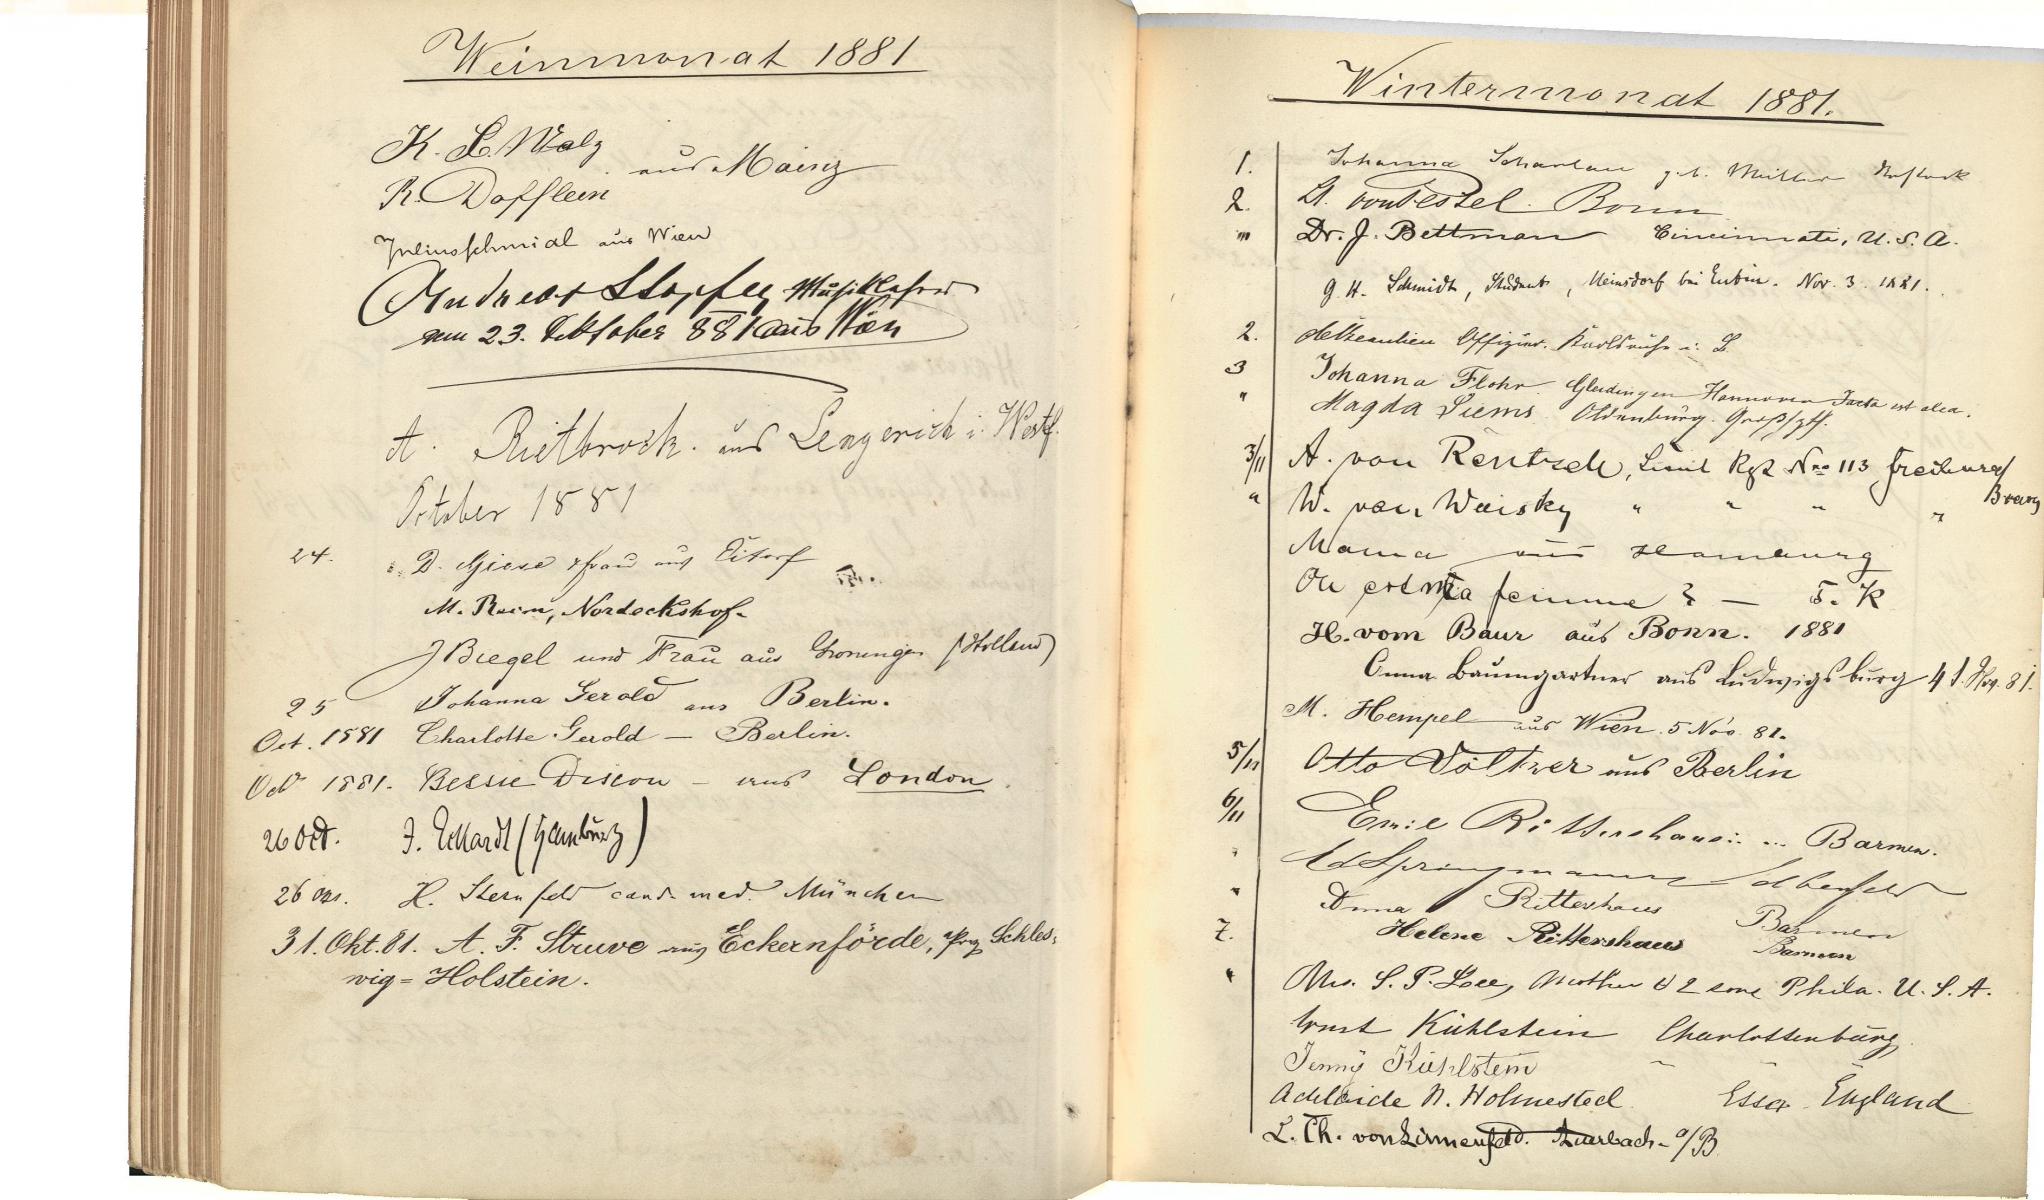 Weinmonat 1881
K. L. Walz
aus Mainz
R. Dofflein
Julius Schmid aus Wien
Andreas Stopfer Musiklehrer
am 23. Oktober 881 aus Wien
A. Rietbrock. aus Lengerich i. Westf.
October 1881
24. D. Giese & Frau aus Eitorf
M. Nordeckshof.
J Biegel und Frau aus Groningen (Holland)
25 Johanna Gerold aus Berlin.
Oct. 1881 Charlotte Gerold — Berlin.
Oct 1881. Bessie – aus London
26 Oct. J. Eckardt (Hamburg)
26 H. Sternfeld cand. med. München
31. Okt. 81. A. F. Struve aus Eckernförde, Prov. Schles-
wig = Holstein.
Wintermonat 1881.
1. Johanna Scharlau geb. Müller Rostock
2. von Pestel. Bonn
" Dr. J. Bettman Cincinnati, U. S. A.
G. H. Schmidt, Student, bei Eutin. Nov. 3. 1881.
2. Offizier. Karlsruhe i. B.
3 Johanna Flohr Gleidingen Hannover Jacta est alea.
" Magda Siems. Oldenburg. Großhzth.
3/11 A. von Rentzell, Lieut Rgt No 113 Freiburg/
Breisg
" W. von Waisky " " " "
Mama aus Hamburg
Où est la femme? — F. K
H. vom Baur aus Bonn. 1881
Anna Baumgartner aus Ludwigsburg 4 t. Nov. 81.
M. Hempel aus Wien. 5 Nov. 81.
5/11 Otto Völtzer aus Berlin
6/11 Emil Rittershaus: ... Barmen.
" Springmann Elberfeld
" Anna Rittershaus Barmen
7. Helene Rittershaus Barmen
" Mrs. S. P. Lee, Mother & 2 sons Phila. U. S. A.
Ernst Kühlstein Charlottenburg
Jenny Kühlstein "
Adelaide N. Holmested Essex England
L. Ch. von Linnenfeld. Auerbach - a/B